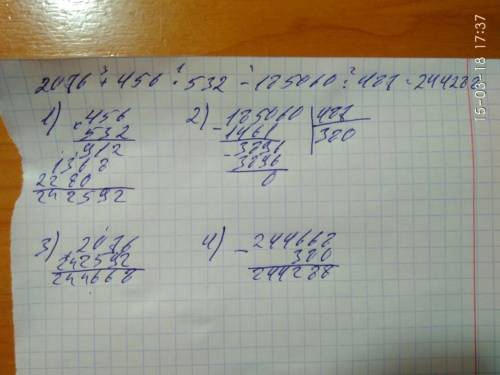 15-03-18 17:37
3 1 4 2
2076 + 456 · 532 - 185060 : 487 = 244288
1) 456
× 532
912
1368
2280
242592
2) 185060 | 487
- 1461 | 380
- 3896
3896
0
3) 2076
+ 242592
244668
4) 244668
- 380
244288